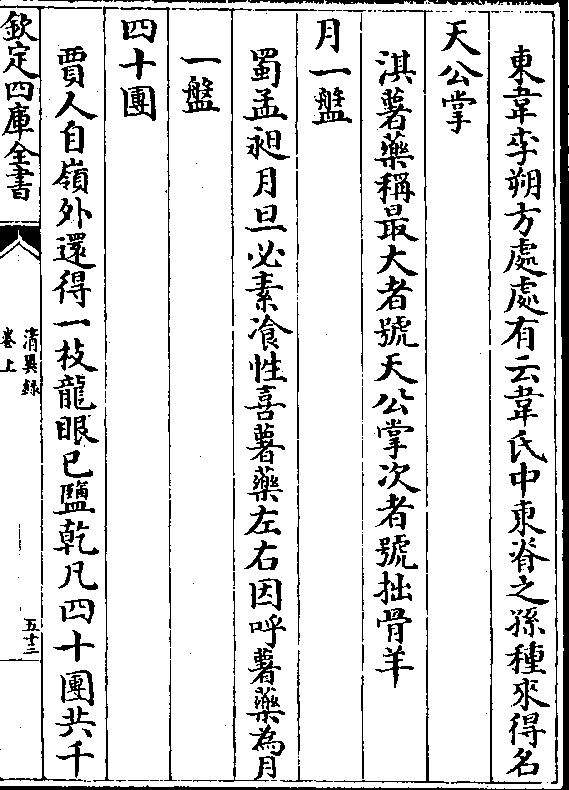 東韋李朔方處處有云韋氏中東眷之孫種來得名
天公掌
淇薯藥稱最大者號天公掌次者號拙骨羊
月一盤
蜀孟昶月旦必素飡性喜薯藥左右因呼薯藥為月
一盤
四十團
賈人自嶺外還得一枝龍眼已鹽乾凡四十團共千
欽定四庫全書
清異錄
卷上
五十二